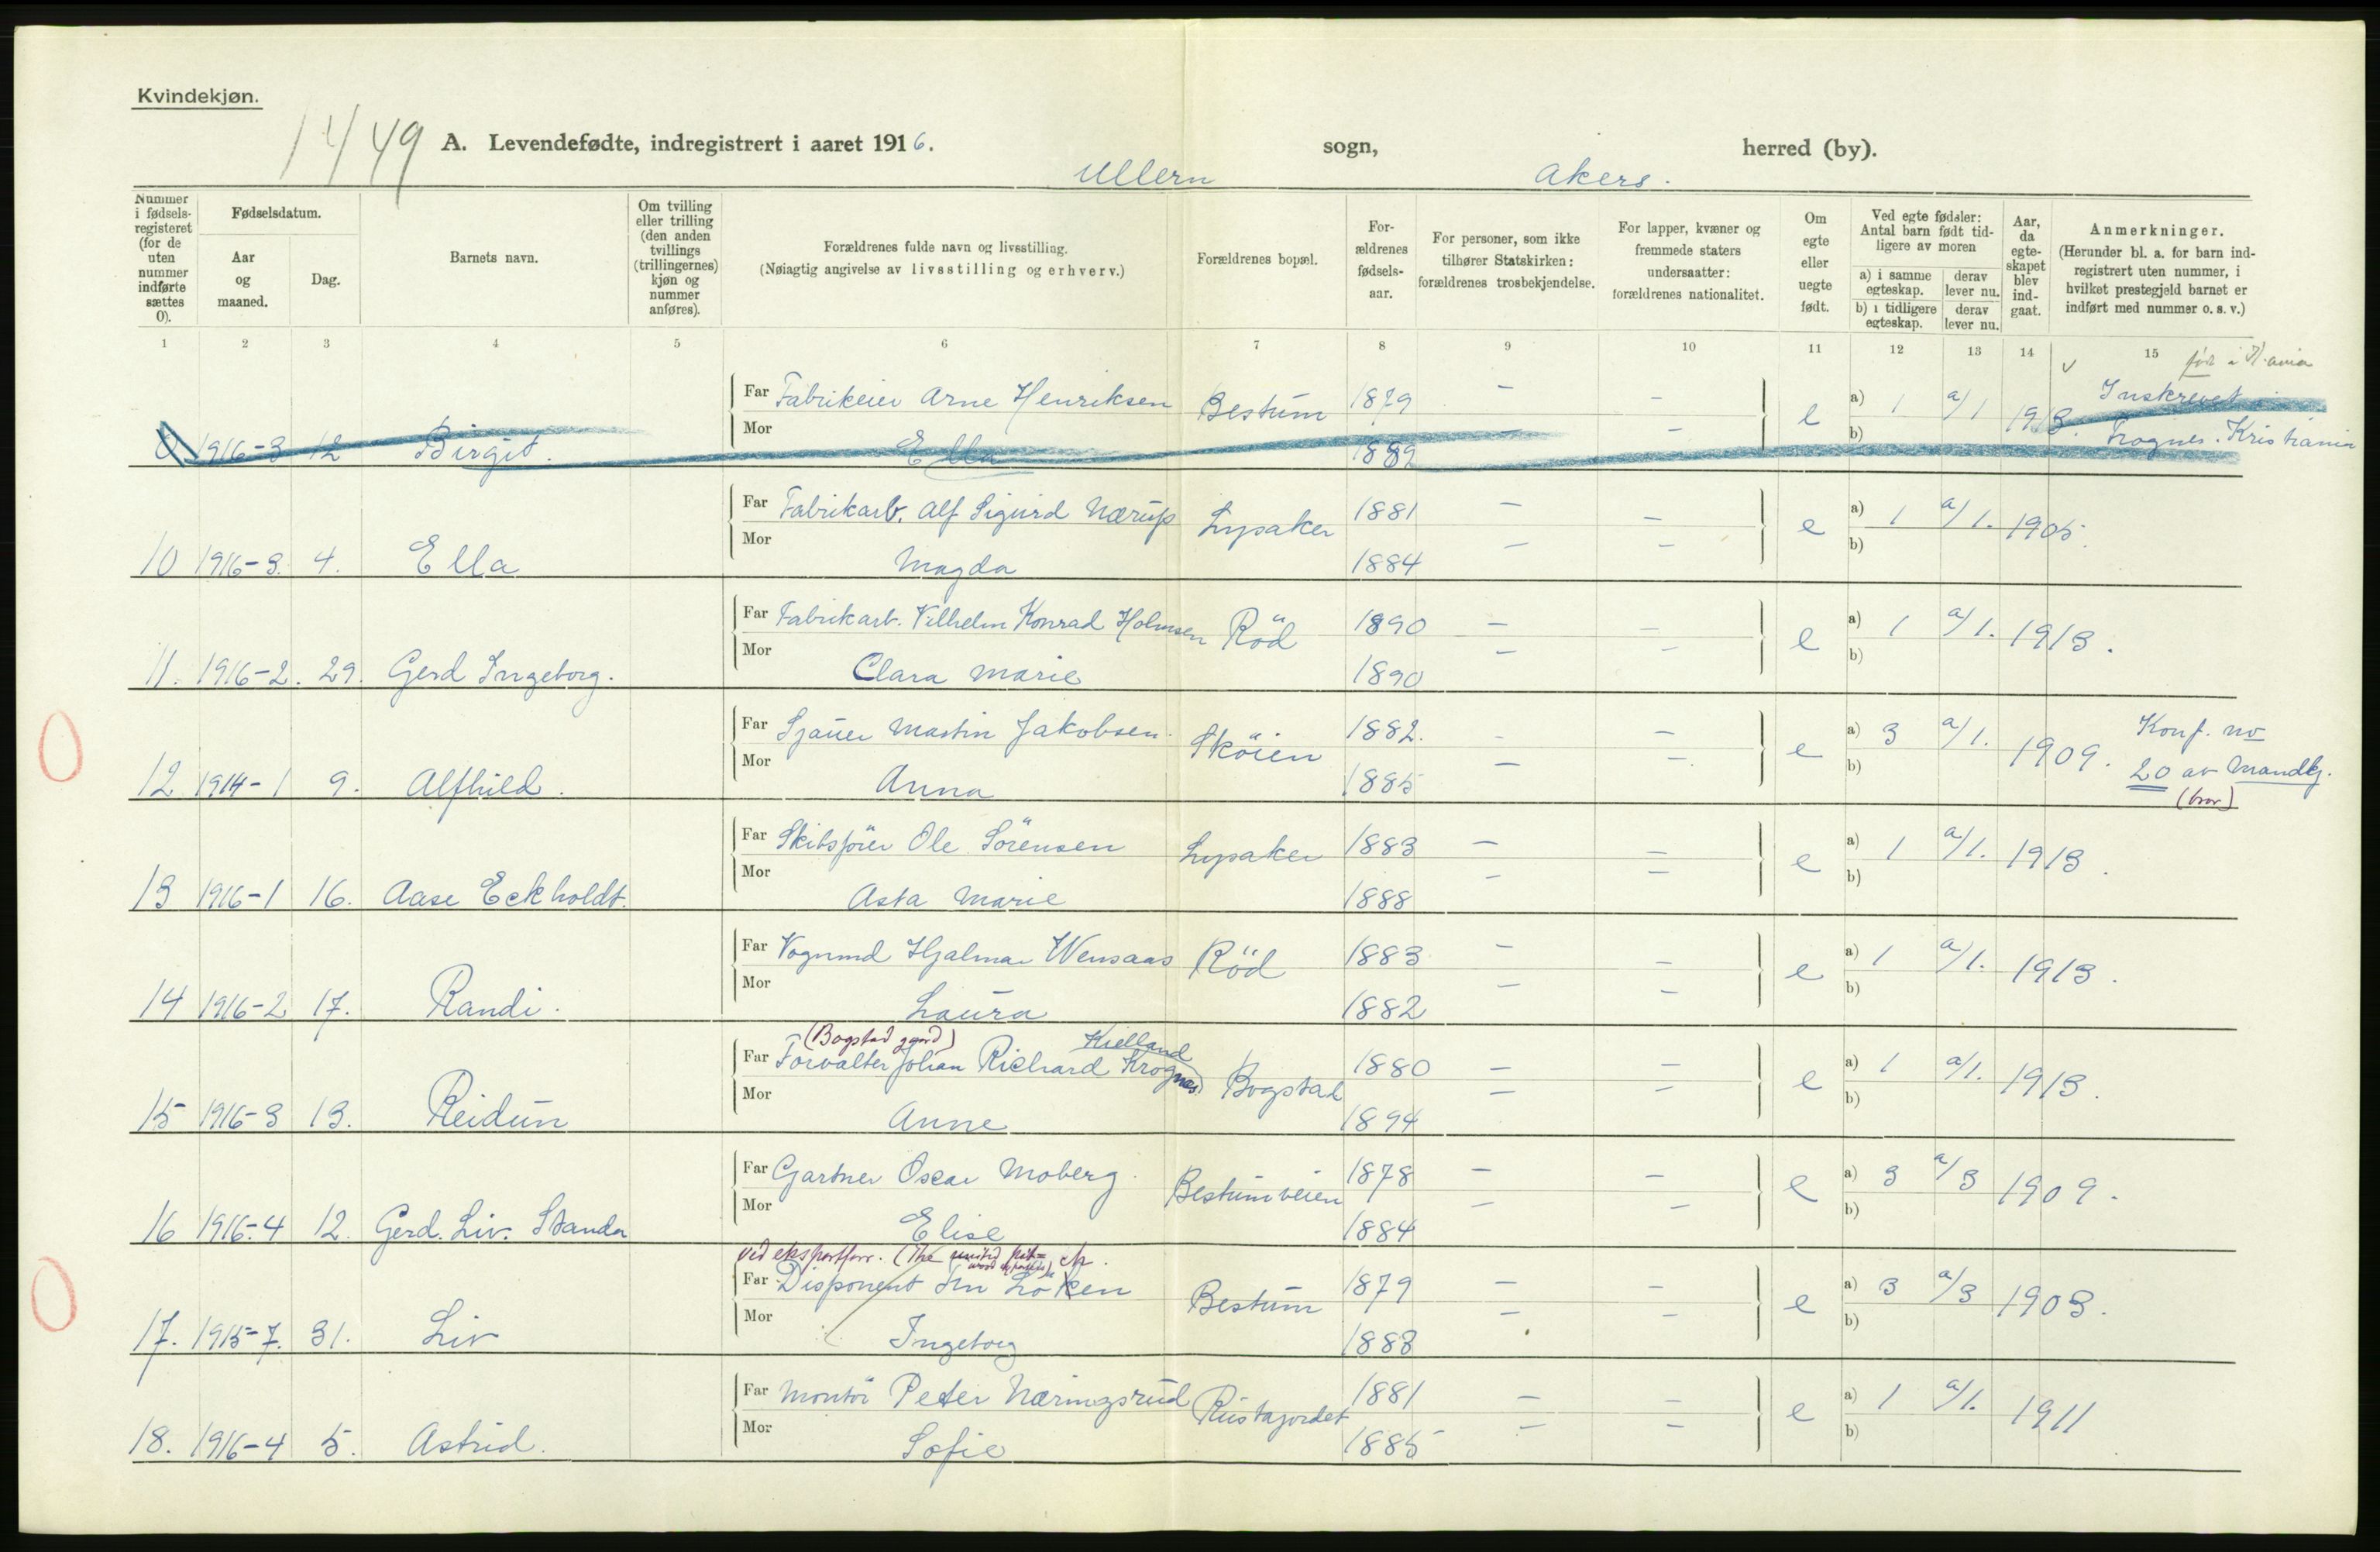 Kvindekjøn.
1449
A. Levendefødte, indregistrert i aaret 1916. Ullern sogn, Akers. herred (by).
Nummer i fødselsregisteret (for de uten nummer indførte sættes 0).
Fødselsdatum.
Aar og maaned.
Dag.
Barnets navn.
Om tvilling eller trilling (den anden tvillings (trillingernes) kjøn og nummer anføres).
Forældrenes fulde navn og livsstilling.
(Nøiagtig angivelse av livsstilling og erhverv.)
Forældrenes bopæl.
Forældrenes fødselsaar.
For personer, som ikke tilhører Statskirken: forældrenes trosbekjendelse.
For lapper, kvæner og fremmede staters undersaatter: forældrenes nationalitet.
Om egte eller uegte født.
Ved egte fødsler: Antal barn født tidligere av moren
a) i samme egteskap. derav lever nu.
b) i tidligere egteskap. derav lever nu.
Aar, da egteskapet blev indgaat.
Anmerkninger.
(Herunder bl. a. for barn indregistrert uten nummer, i hvilket prestegjeld barnet er indført med nummer o. s. v.)
1 2 3 4 5 6 7 8 9 10 11 12 13 14 15
født i Kr.ania
Far Fabrikeier Arne Henriksen Bestum 1879 — — e a) 1 a/1 1913. Inskrevet i
0 1916-3 12 Birgit. Mor Ella 1889 — — b) Frogner. Kristiania
Far Fabrikarb. Alf Sigurd Nærup Lysaker 1881 — — e a) 1 a/1. 1905.
10 1916-3. 4. Ella Mor Magda 1884 — — b)
Far Fabrikarb. Vilhelm Konrad Holmsen Röd 1890 — — e a) 1 a/1. 1913.
11. 1916-2. 29. Gerd Ingeborg. Mor Clara Marie 1890 — — b)
Far Sjauer Martin Jakobsen. Sköien 1882. — — e a) 3 a/1. 1909. Konf. no
12 1914-1 9. Alfhild. Mor Anna 1885 — — b) 20 av Mandkj.
(bror)
Far Skibsförer Ole Sörensen Lysaker 1883 — — e a) 1 a/1. 1913.
13 1916-1 16. Aase Eckholdt. Mor Asta Marie 1888 — — b)
Far Vognmd Hjalmar Wensaas Röd 1883 — — e a) 1 a/1. 1913.
14 1916-2 17. Randi. Mor Laura 1882 — — b)
(Bogstad gaard) Kielland
Far Forvalter Johan Richard Krognes. Bogstad 1880 — — e a) 1 a/1. 1913.
15 1916-3 13. Reidun Mor Anne 1894 — — b)
Far Gartner Oscar Moberg. Bestumveien 1878 — — e a) 3 a/3 1909.
16 1916-4 12. Gerd. Liv. Standa Mor Elise 1884 — — b)
ved eksportforr. (The united
Far Disponent Löken Bestum 1879 — — e a) 3 a/3 1903.
17. 1915-7. 31. Liv Mor Ingeborg 1883 — — b)
Far Montör Peter Næringsrud Rustajordet 1881 — — e a) 1 a/1. 1911
18. 1916-4 5. Astrid. Mor Sofie 1885 — — b)